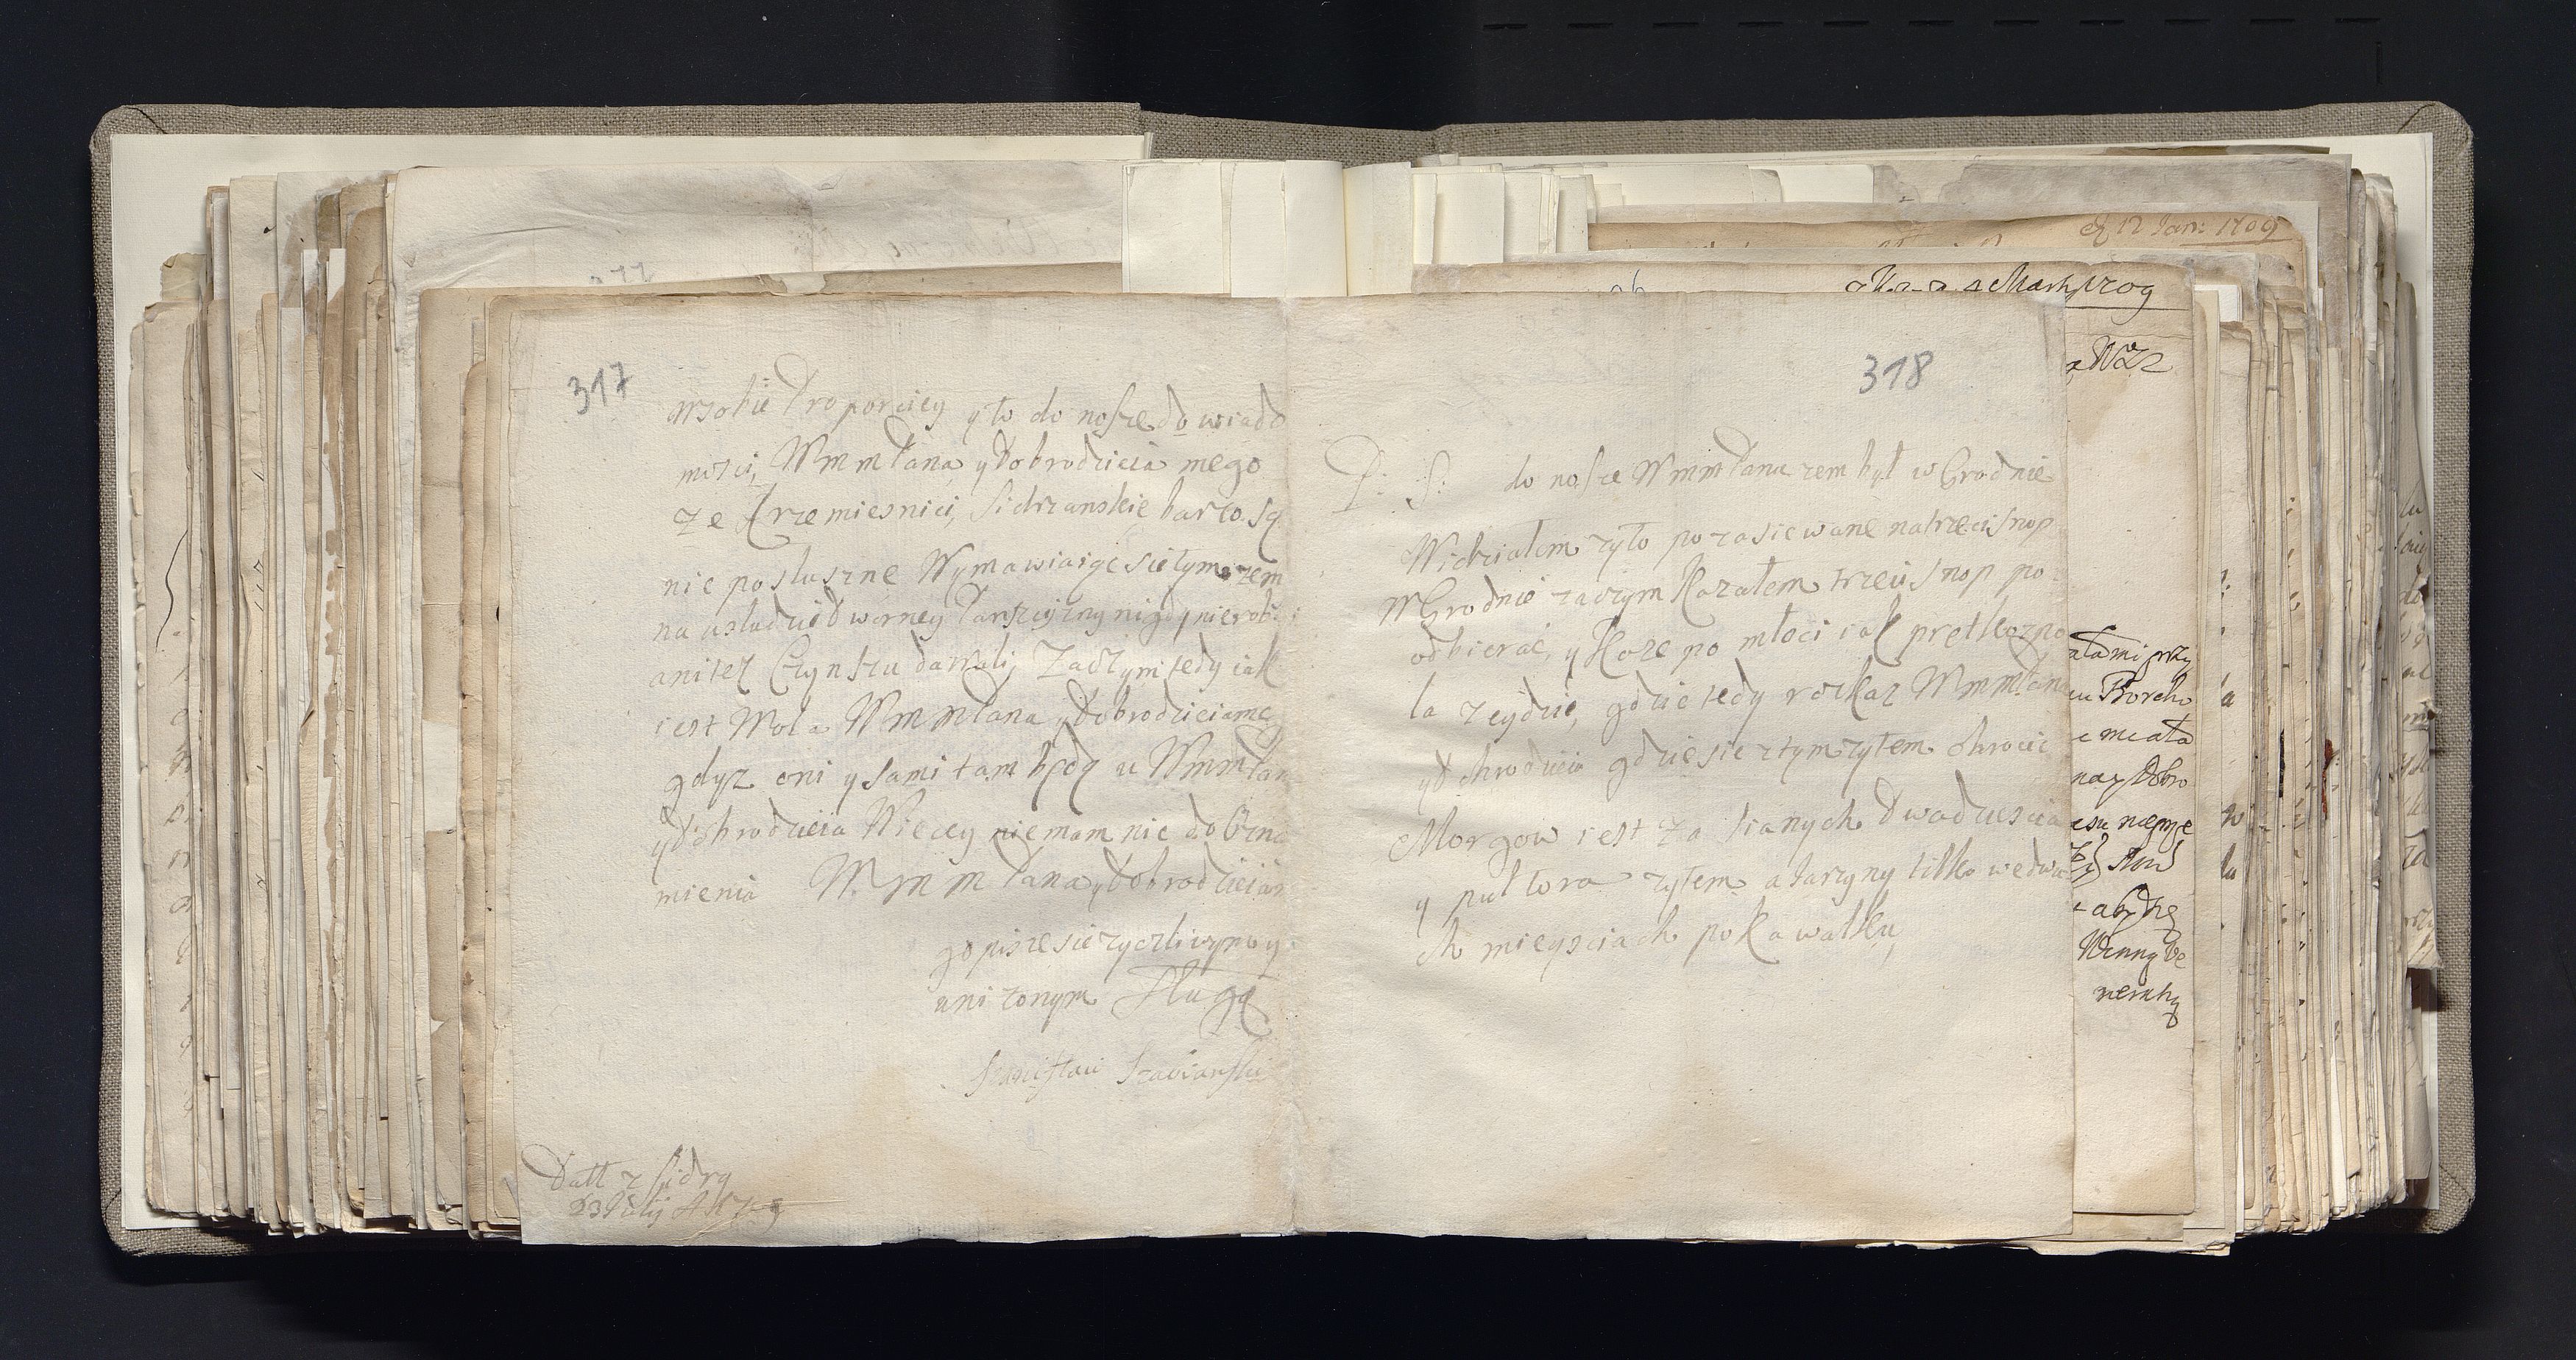 317
w sobie Proporciey y to do nosze do wiado
mosci, Wm m Pana, y Dobrodzieia mego
ze Rzemiesnici, Sidrzanskie barzo są
nie posluszne Wymawiaiąc sie tym zem
na usludzie Dworney Panszczyzny nigdy nie rob
anitez Czynszu dawali, Zaczym tedy iak
iest Wola Wm m Pana y Dobrodzieia meg
gdyz oni y sami tam będą u Wm m Pan
y Dobrodzieia Wiecey nie mam nic do Ozna
mienia Wm m Pana y Dobrodzieia m
go pisze sie zyczliwym y
unizonym Sługą
Stanisław
Datt z Sidry
23 July A 1709
318
P: S: do nosze Wm m Panu zem był w Grodnie
Widziałem zyto pozasiewane na trzeci snop
W Grodnie zaczym Kazałem trzeci snop po
odbierać, y Każe po młoci iak prętko zpo
la zeydzie, gdzie tedy roskaz Wm m Pana
y Dobrodzieia gdzie sie z tym zytem obrocic
Morgow iest Za sianych Dwadziescia
y pultora zytem a Jarzyny tilko we dwu
ch mieysciach po Kawałku
12 Jan: 1709
1709
ałami przy
e miała
nay Dobro